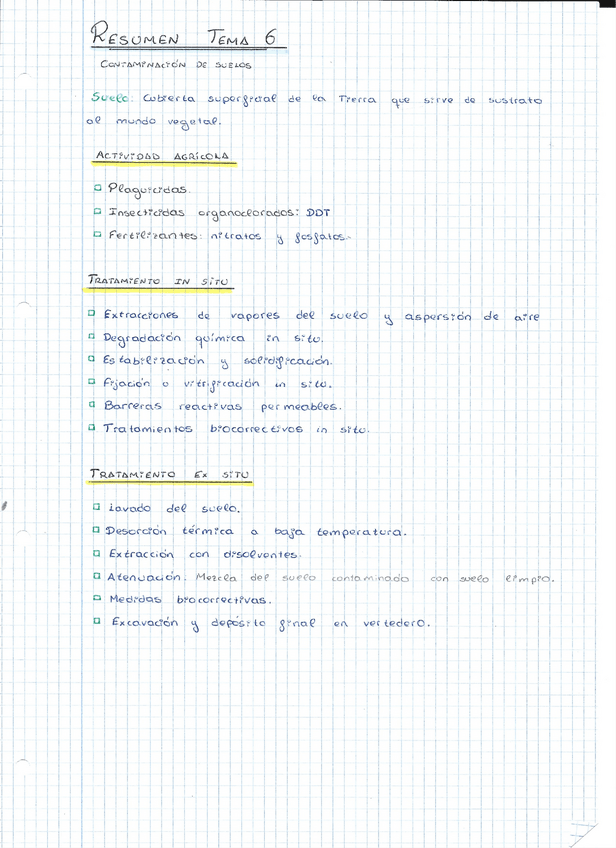 RESUMEN TEMA 6
CONTAMINACIÓN DE SUELOS
Suelo: Cubierta superficial de la Tierra que sirve de sustrato
al mundo vegetal.
ACTIVIDAD AGRÍCOLA
Plaguicidas.
Insecticidas organoclorados: DDT
Fertilizantes: nitratos y fosfatos.
TRATAMIENTO IN SITU
Extracciones de vapores del suelo y aspersión de aire
Degradación química in situ.
Estabilización y solidificación.
Fijación o vitrificación in situ.
Barreras reactivas permeables.
Tratamientos biocorrectivos in situ.
TRATAMIENTO EX SITU
Lavado del suelo.
Desorción térmica a baja temperatura.
Extracción con disolventes.
Atenuación: Mezcla del suelo contaminado con suelo limpio.
Medidas biocorrectivas.
Excavación y depósito final en vertedero.